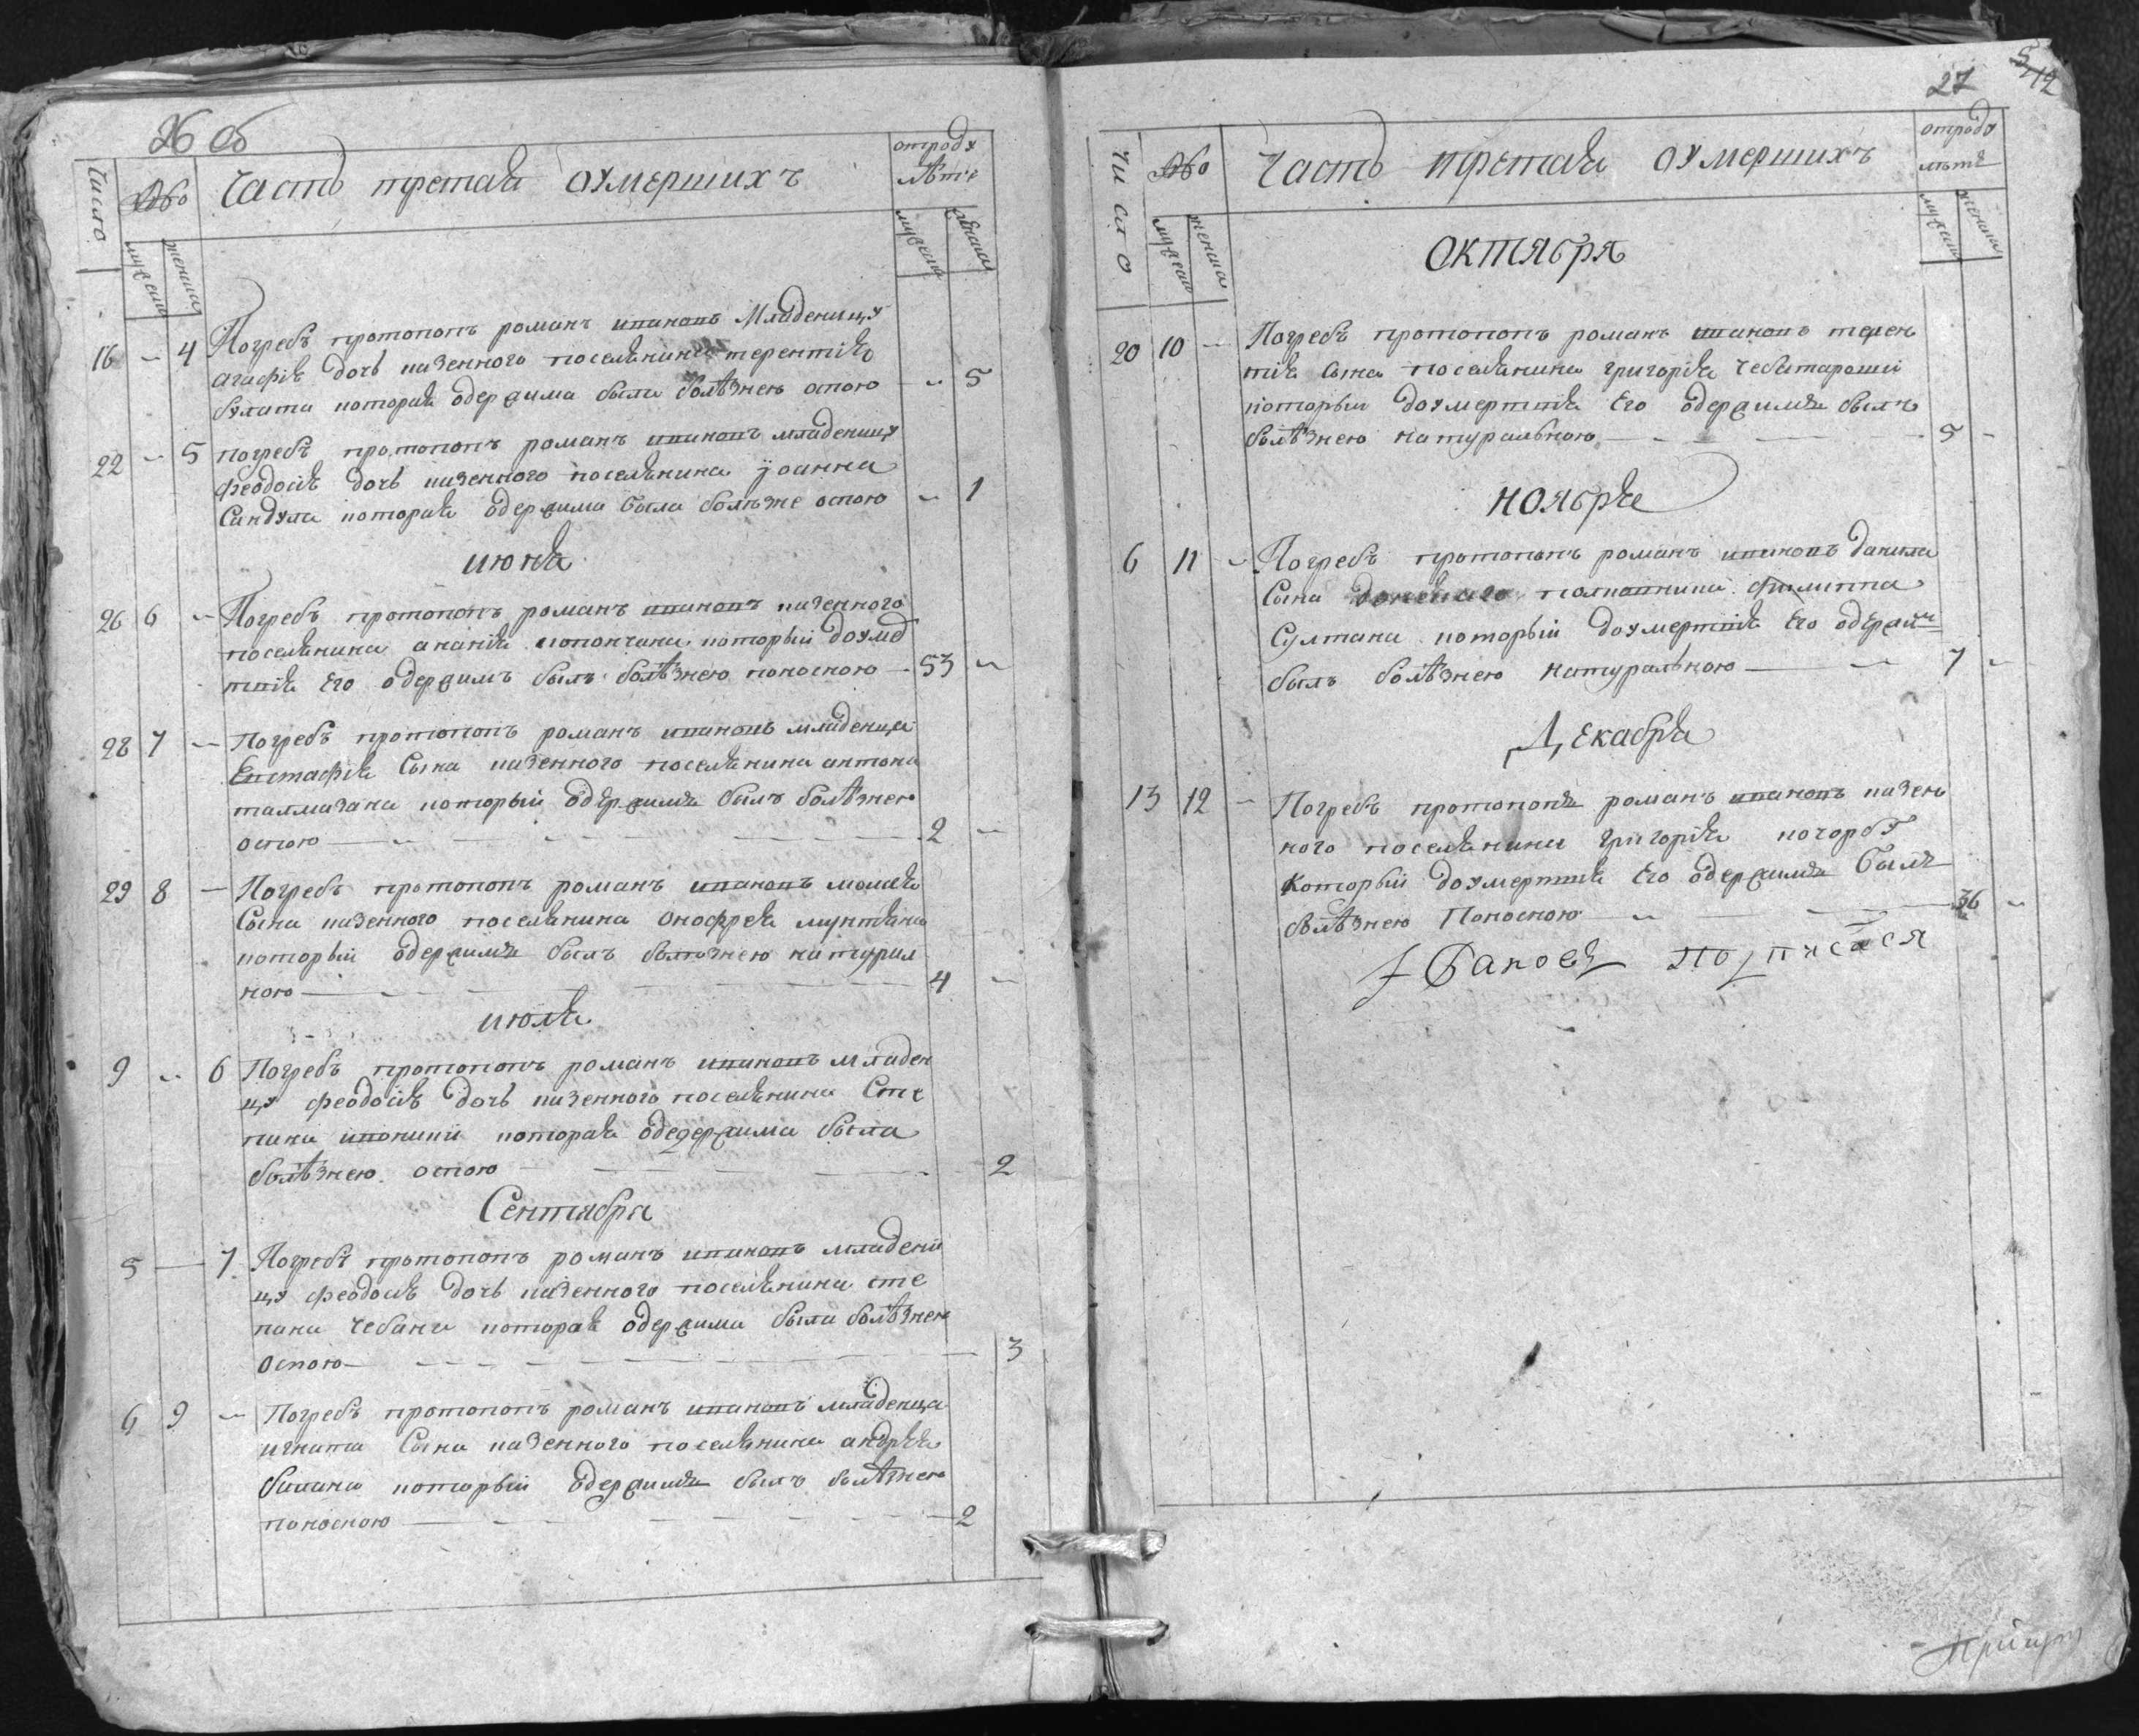 26 об
Число
Часть третая оумершихъ
отроду
лѣтъ
мужеска
женска
мужеска
женска
16 – 4 Погребъ протопопъ романъ Младеницу
агафія дочь казенного поселянина терентія
булата которая одержима была болѣзнею оспою – 5
22 – 5 погребъ протопопъ романъ младеницу
феодосія дочь казенного поселянина іоанна
Сандула которая одержима была болѣзне оспою – 1
июня
26 6 – Погребъ протопопъ романъ казенного
поселянина ананія который доумер
твія Его одержимъ былъ болѣзнею поносною – 53 –
28 7 – Погребъ протопопъ романъ младенца
Евстафія Сына казенного поселянина антона
талмазана который одержимъ былъ болѣзнею
оспою – 2 –
29 8 – Погребъ протопопъ романъ
Сына казенного поселянина онофрея мунтяна
который одержимъ былъ болѣзнею натурал
ною – 4 –
июля
9 – 6 Погребъ протопопъ романъ младен
цу феодосія дочь казенного поселянина Сте
пана которая одедержима была
болѣзнею оспою – 2
Сентября
5 – 7 Погребъ протопопъ романъ младени
цу феодосія дочь казенного поселянина сте
пана чебана которая одержима была болѣзнею
оспою – 3
6 9 – Погребъ протопопъ романъ младенца
игната Сына казенного поселянина андрея
балана который одержимъ былъ болѣзнею
поносною – 2
27
Число
Часть третая оумершихъ
отроду
лѣтъ
мужеска
женска
мужеска
женска
октября
20 10 – Погребъ протопопъ романъ терен
тія Сына поселянина григорія чебатароши
который доумертвія Его одержимъ былъ
болѣзнею натуральною – 5 –
ноября
6 11 – Погребъ протопопъ романъ данила
Сына филиппа
Султана который доумертвія Его одержим
былъ болѣзнею натуральною – 7 –
Декабря
13 12 – Погребъ протопопъ романъ казен
ного поселянина григорія
Который доумертвія Его одержимъ былъ
болѣзнею Поносною – 36 –